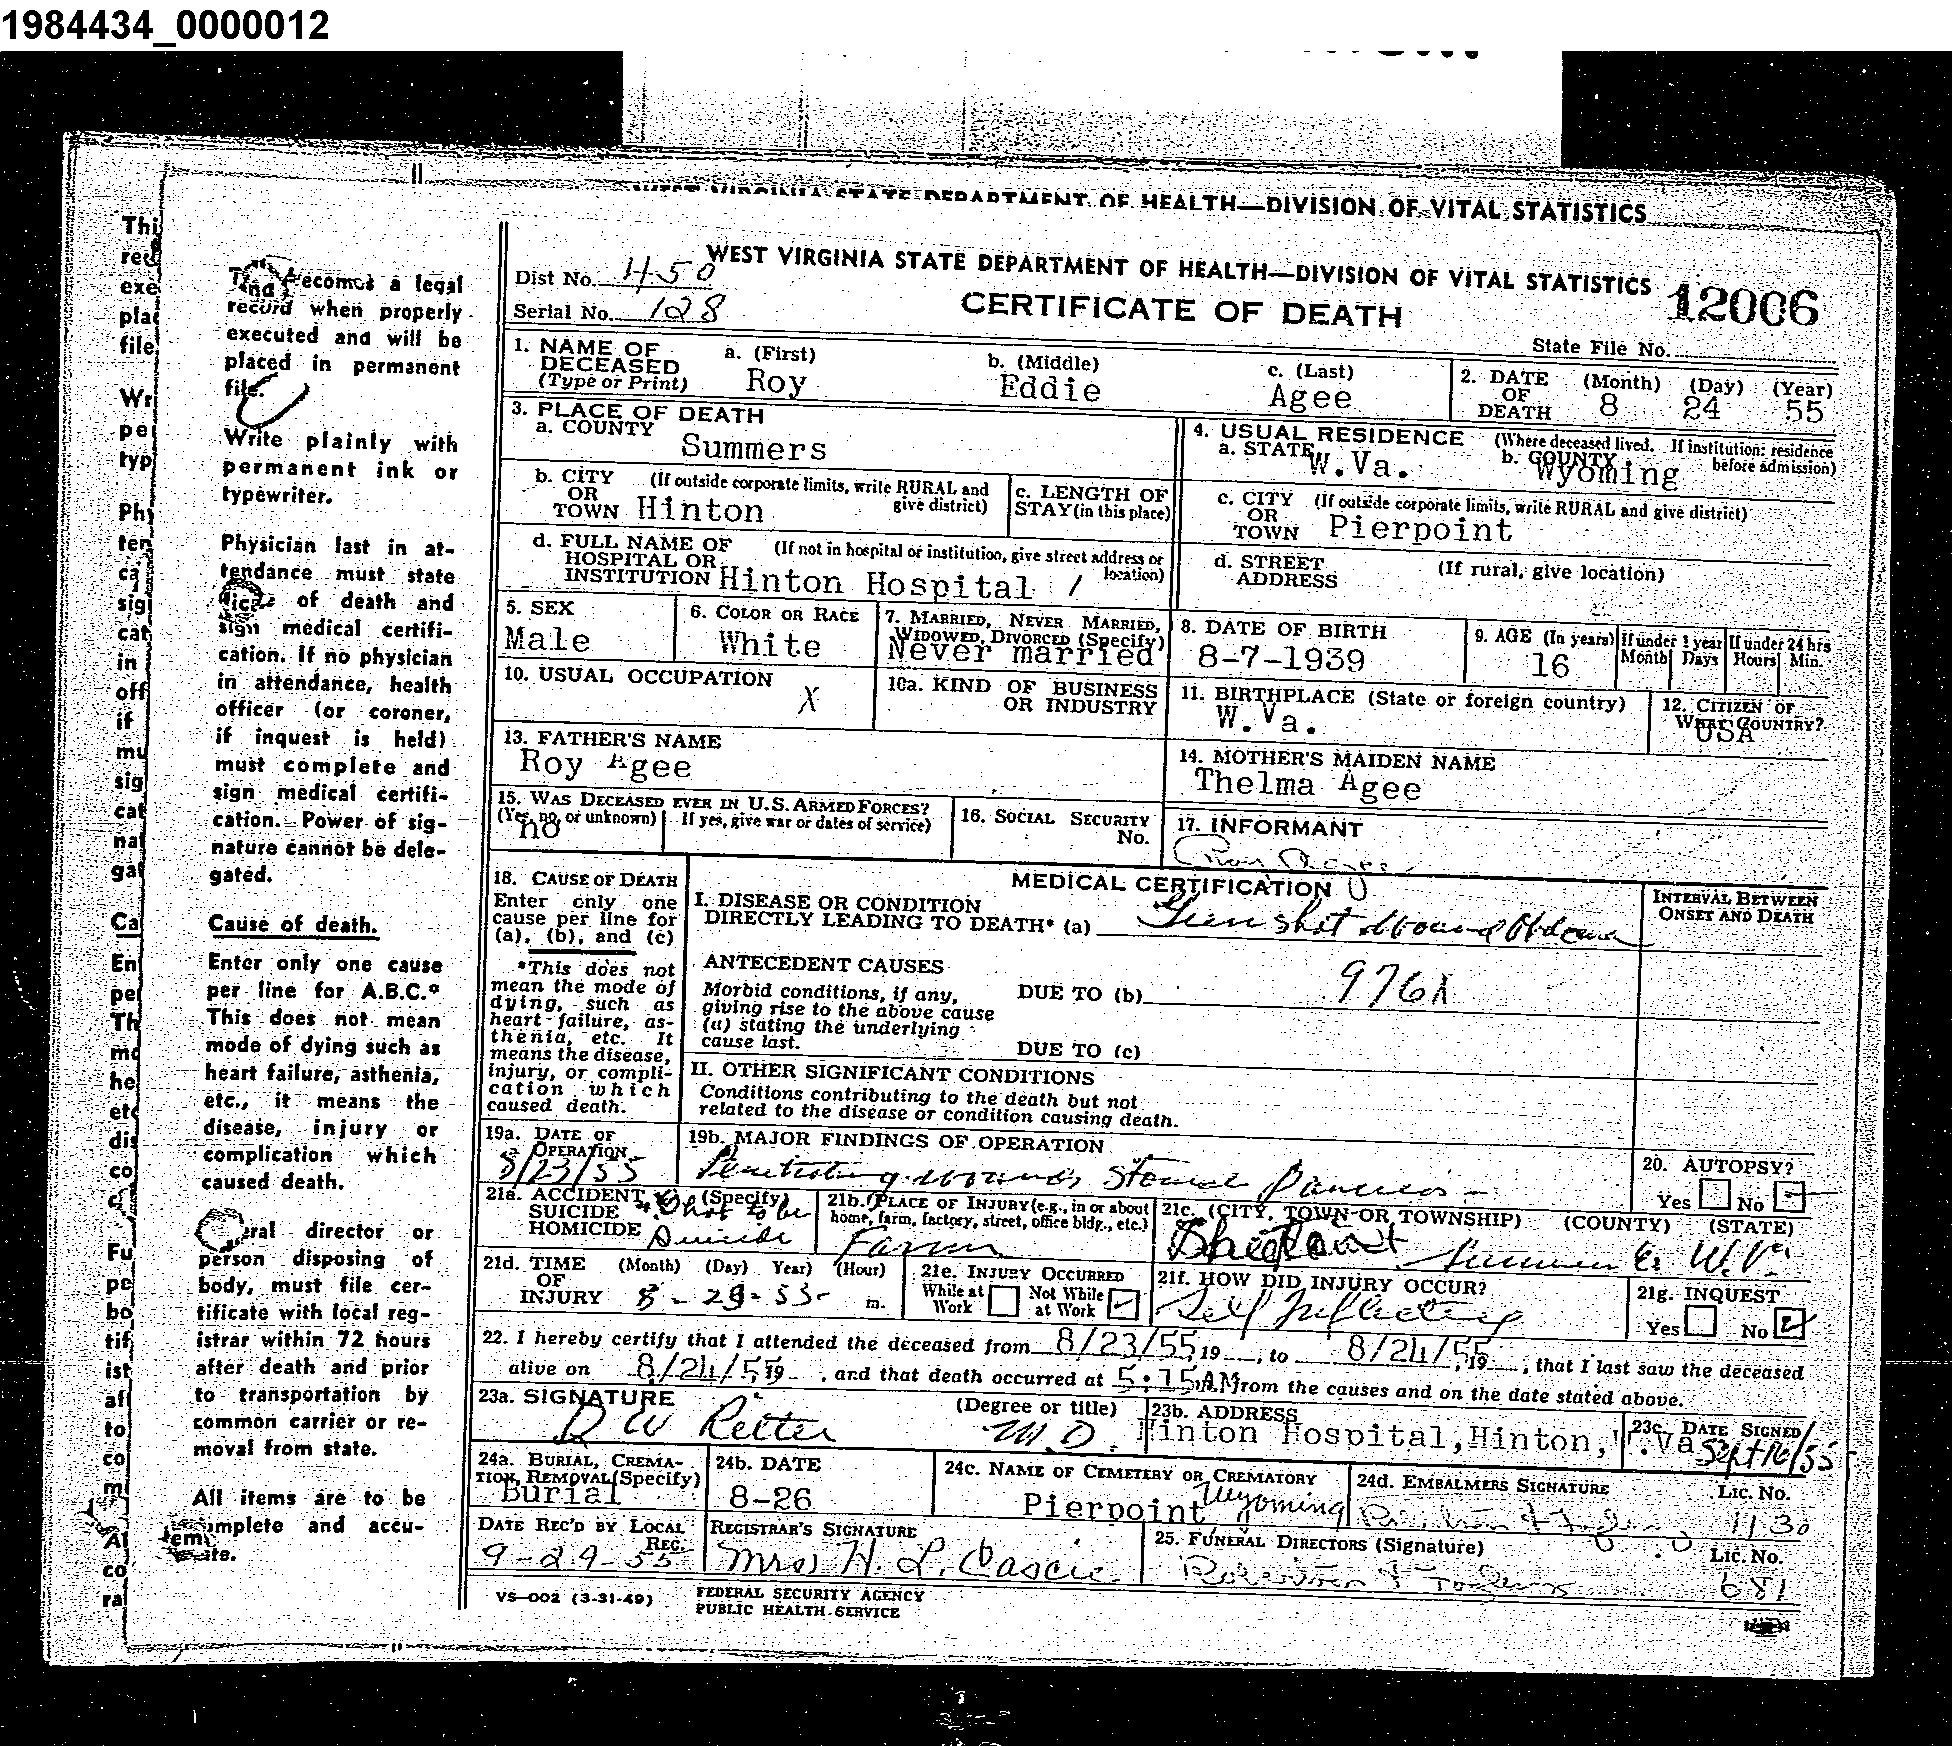 1984434_0000012
WEST VIRGINIA STATE DEPARTMENT OF HEALTH—DIVISION OF VITAL STATISTICS
This becomes a legal
record when properly
executed and will be
placed in permanent
file.
Write plainly with
permanent ink or
typewriter.
Physician last in at-
tendance must state
of death and
sign medical certifi-
cation. If no physician
in attendance, health
officer (or coroner,
if inquest is held)
must complete and
sign medical certifi-
cation. Power of sig-
nature cannot be dele-
gated.
Cause of death.
Enter only one cause
per line for A.B.C.*
This does not mean
mode of dying such as
heart failure, asthenia,
etc., it means the
disease, injury or
complication which
caused death.
Funeral director or
person disposing of
body, must file cer-
tificate with local reg-
istrar within 72 hours
after death and prior
to transportation by
common carrier or re-
moval from state.
All items are to be
complete and accu-
rate.
Dist No. 450
WEST VIRGINIA STATE DEPARTMENT OF HEALTH—DIVISION OF VITAL STATISTICS
Serial No. 128
CERTIFICATE OF DEATH
12006
State File No.
1. NAME OF DECEASED (Type or Print) a. (First) Roy b. (Middle) Eddie c. (Last) Agee
2. DATE OF DEATH (Month) (Day) (Year) 8 24 55
3. PLACE OF DEATH
a. COUNTY Summers
4. USUAL RESIDENCE (Where deceased lived. If institution: residence before admission)
a. STATE W.Va. b. COUNTY Wyoming
b. CITY OR TOWN (If outside corporate limits, write RURAL and give district) Hinton
c. LENGTH OF STAY (in this place)
c. CITY OR TOWN (If outside corporate limits, write RURAL and give district) Pierpoint
d. FULL NAME OF HOSPITAL OR INSTITUTION (If not in hospital or institution, give street address or location) Hinton Hospital /
d. STREET ADDRESS (If rural, give location)
5. SEX Male
6. COLOR OR RACE White
7. MARRIED, NEVER MARRIED, WIDOWED, DIVORCED (Specify) Never married
8. DATE OF BIRTH 8-7-1939
9. AGE (In years) 16 If under 1 year Months Days If under 24 hrs Hours Min.
10. USUAL OCCUPATION X
10a. KIND OF BUSINESS OR INDUSTRY
11. BIRTHPLACE (State or foreign country) W.Va.
12. CITIZEN OF WHAT COUNTRY? USA
13. FATHER'S NAME Roy Agee
14. MOTHER'S MAIDEN NAME Thelma Agee
15. WAS DECEASED EVER IN U.S. ARMED FORCES? (Yes, no, or unknown) no If yes, give war or dates of service)
16. SOCIAL SECURITY No.
17. INFORMANT
18. CAUSE OF DEATH
Enter only one cause per line for (a), (b), and (c)
*This does not mean the mode of dying, such as heart failure, asthenia, etc. It means the disease, injury, or complication which caused death.
MEDICAL CERTIFICATION
INTERVAL BETWEEN ONSET AND DEATH
I. DISEASE OR CONDITION DIRECTLY LEADING TO DEATH* (a) Gun shot wound Abdomen
ANTECEDENT CAUSES
Morbid conditions, if any, giving rise to the above cause (a) stating the underlying cause last.
DUE TO (b) 976
DUE TO (c)
II. OTHER SIGNIFICANT CONDITIONS
Conditions contributing to the death but not related to the disease or condition causing death.
19a. DATE OF OPERATION 8/23/55
19b. MAJOR FINDINGS OF OPERATION Penetrating wounds Stomach Pancreas -
20. AUTOPSY? Yes No
21a. ACCIDENT SUICIDE HOMICIDE (Specify) to be Suicide
21b. (PLACE OF INJURY (e.g., in or about home, farm, factory, street, office bldg., etc.) Farm
21c. (CITY, TOWN OR TOWNSHIP) (COUNTY) (STATE) Summers Co W.V.
21d. TIME OF INJURY (Month) (Day) Year) (Hour) m. 8-23-55
21e. INJURY OCCURRED While at Work Not While at Work
21f. HOW DID INJURY OCCUR? Self Inflicting
21g. INQUEST Yes No
22. I hereby certify that I attended the deceased from 8/23/55, 19, to 8/24/55, 19, that I last saw the deceased
alive on 8/24/55, 19, and that death occurred at 5:15AM from the causes and on the date stated above.
23a. SIGNATURE (Degree or title) D W Ritter M.D.
23b. ADDRESS Hinton Hospital, Hinton, W.Va
23c. DATE SIGNED Sept 16/55
24a. BURIAL, CREMATION, REMOVAL (Specify) Burial
24b. DATE 8-26
24c. NAME OF CEMETERY OR CREMATORY Pierpoint Wyoming
24d. EMBALMERS SIGNATURE Lic. No. 1130
DATE REC'D BY LOCAL REG. 9-29-55
REGISTRAR'S SIGNATURE Mrs H. L. Cascie
25. FUNERAL DIRECTORS (Signature) Lic. No. 651
VS—002 (3-31-49)
FEDERAL SECURITY AGENCY
PUBLIC HEALTH SERVICE